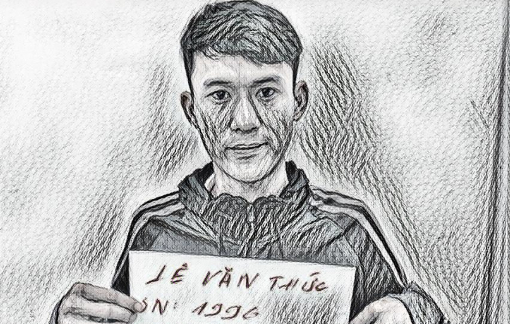 LÊ VĂN THỨC
SN: 1996